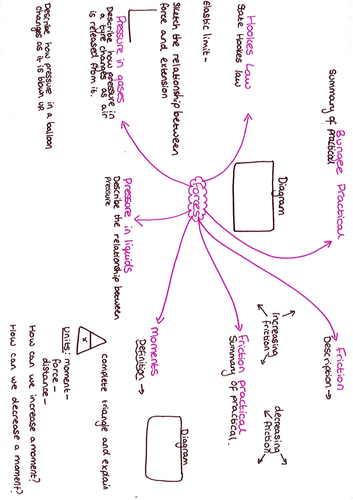 Bungee Practical
Summary of practical
Hookes Law
State Hookes law
Elastic limit -
Sketch the relationship between
force and extension
Diagram
Forces
Friction
Description →
Increasing
Friction
decreasing
Friction
Friction practical
Summary of practical.
Moments
Definition →
Diagram
x
complete triangle and explain
Units: moment -
force -
distance -
How can we increase a moment?
How can we decrease a moment?
Pressure in liquids
Describe the relationship between
Pressure
Pressure in gases
Describe how pressure in
a tyre changes as air
is released from it.
Describe how pressure in a balloon
changes as it is blown up